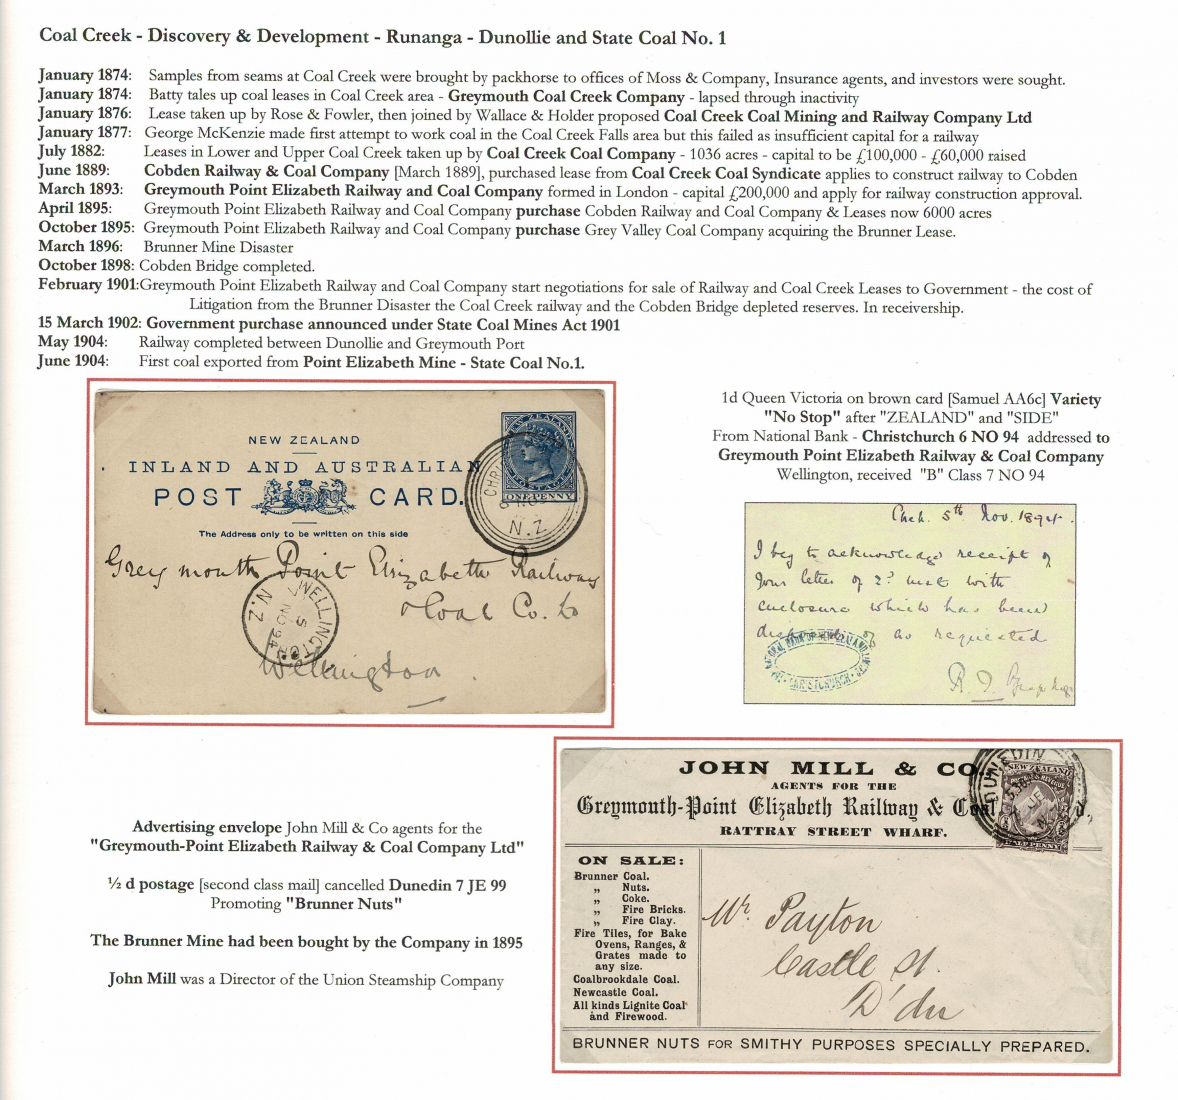 Coal Creek - Discovery & Development - Runanga - Dunollie and State Coal No. 1
January 1874: Samples from seams at Coal Creek were brought by packhorse to offices of Moss & Company, Insurance agents, and investors were sought.
January 1874: Batty tales up coal leases in Coal Creek area - Greymouth Coal Creek Company - lapsed through inactivity
January 1876: Lease taken up by Rose & Fowler, then joined by Wallace & Holder proposed Coal Creek Coal Mining and Railway Company Ltd
January 1877: George McKenzie made first attempt to work coal in the Coal Creek Falls area but this failed as insufficient capital for a railway
July 1882: Leases in Lower and Upper Coal Creek taken up by Coal Creek Coal Company - 1036 acres - capital to be £100,000 - £60,000 raised
June 1889: Cobden Railway & Coal Company [March 1889], purchased lease from Coal Creek Coal Syndicate applies to construct railway to Cobden
March 1893: Greymouth Point Elizabeth Railway and Coal Company formed in London - capital £200,000 and apply for railway construction approval.
April 1895: Greymouth Point Elizabeth Railway and Coal Company purchase Cobden Railway and Coal Company & Leases now 6000 acres
October 1895: Greymouth Point Elizabeth Railway and Coal Company purchase Grey Valley Coal Company acquiring the Brunner Lease.
March 1896: Brunner Mine Disaster
October 1898: Cobden Bridge completed.
February 1901:Greymouth Point Elizabeth Railway and Coal Company start negotiations for sale of Railway and Coal Creek Leases to Government - the cost of
Litigation from the Brunner Disaster the Coal Creek railway and the Cobden Bridge depleted reserves. In receivership.
15 March 1902: Government purchase announced under State Coal Mines Act 1901
May 1904: Railway completed between Dunollie and Greymouth Port
June 1904: First coal exported from Point Elizabeth Mine - State Coal No.1.
NEW ZEALAND
INLAND AND AUSTRALIAN
POST CARD.
The Address only to be written on this side
ONE PENNY
N.Z
Greymouth Point Elizabeth Railway
& Coal Co. Ld
WELLINGTON
5
NO 94
N.Z
Wellington
1d Queen Victoria on brown card [Samuel AA6c] Variety
"No Stop" after "ZEALAND" and "SIDE"
From National Bank - Christchurch 6 NO 94 addressed to
Greymouth Point Elizabeth Railway & Coal Company
Wellington, received "B" Class 7 NO 94
Chch. 5th Nov. 1894.
I beg to acknowledge receipt of
your letter of 2d inst with
enclosure which has been
as requested
NATIONAL BANK OF NEW ZEALAND
CHRISTCHURCH
Advertising envelope John Mill & Co agents for the
"Greymouth-Point Elizabeth Railway & Coal Company Ltd"
½ d postage [second class mail] cancelled Dunedin 7 JE 99
Promoting "Brunner Nuts"
The Brunner Mine had been bought by the Company in 1895
John Mill was a Director of the Union Steamship Company
JOHN MILL & CO.
AGENTS FOR THE
Greymouth-Point Elizabeth Railway & Coal
RATTRAY STREET WHARF.
DUNEDIN
NEW ZEALAND
HALF PENNY
ON SALE:
Brunner Coal.
„ Nuts.
„ Coke.
„ Fire Bricks.
„ Fire Clay.
Fire Tiles, for Bake
Ovens, Ranges, &
Grates made to
any size.
Coalbrookdale Coal.
Newcastle Coal.
All kinds Lignite Coal
and Firewood.
Mr. Payton
Castle St.
D'din
BRUNNER NUTS FOR SMITHY PURPOSES SPECIALLY PREPARED.